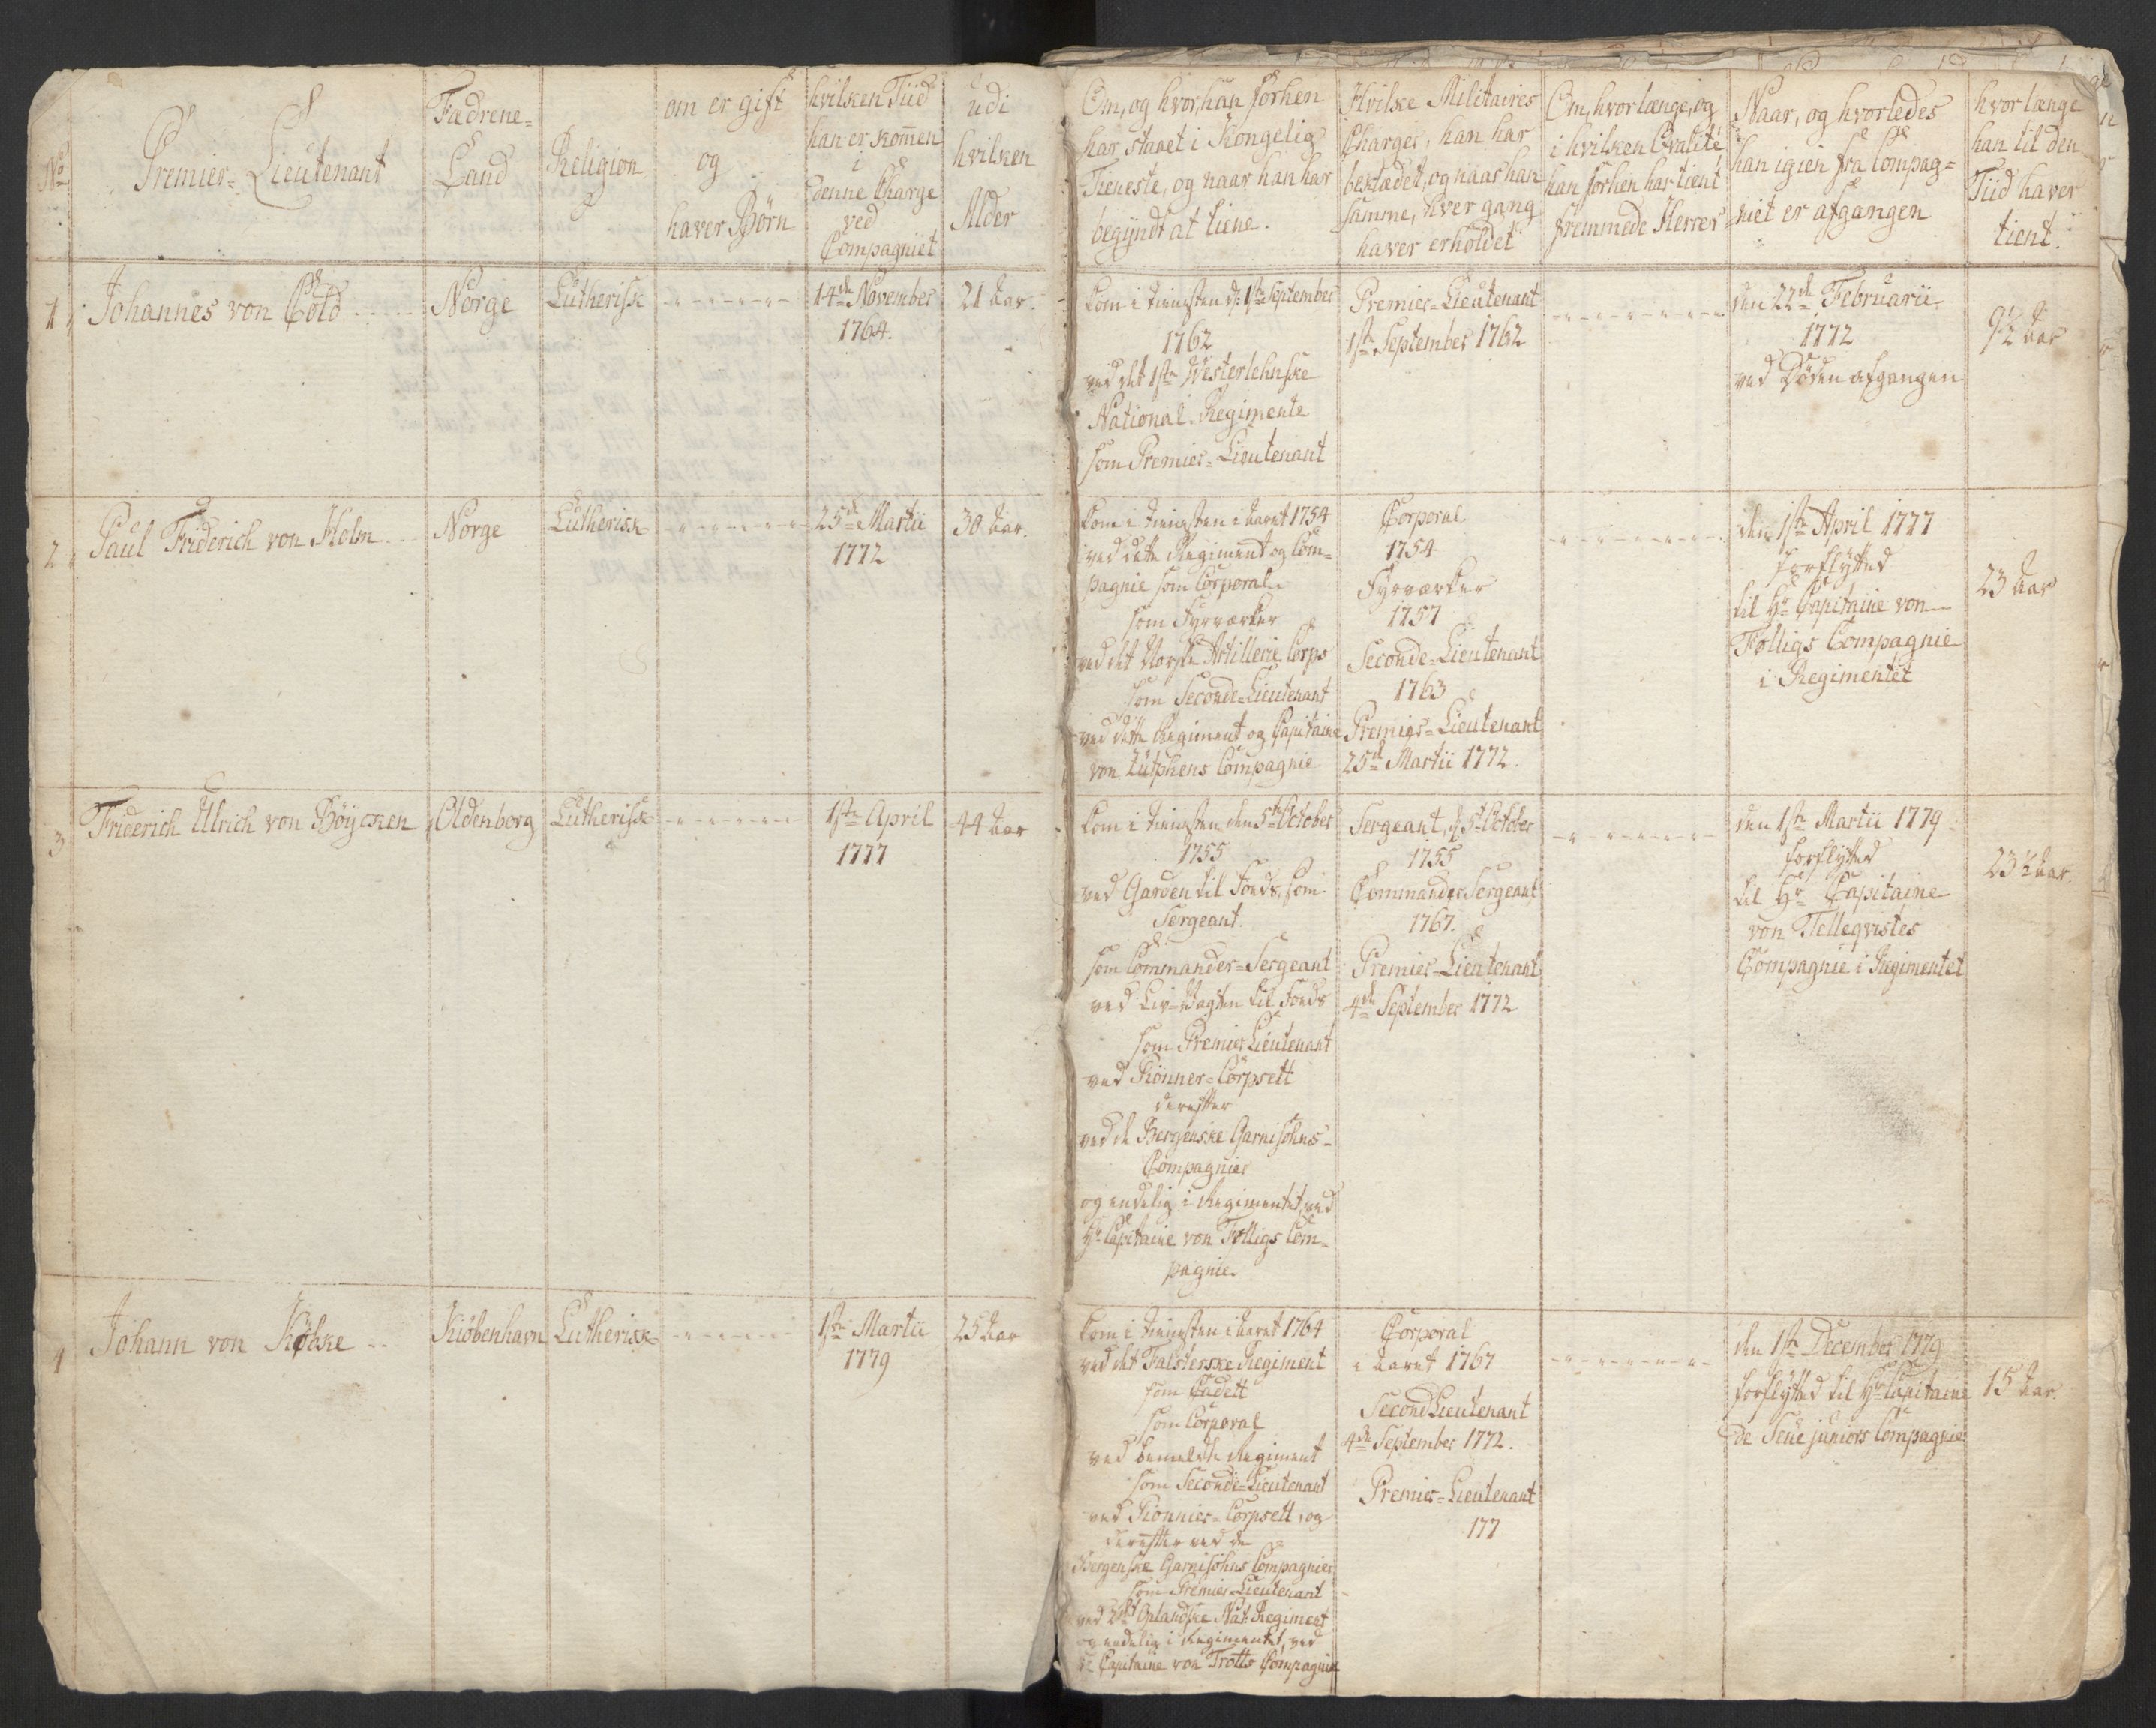 No
Premier=Lieutenant
Fædrene=
Land
Religion
om er gift
og
haver Børn
hvilken Tiid
han er kommen
i
denne Charge
ved
Compagniet
udi
hvilken
Alder
Om, og hvor han forhen
har staaet i Kongelig
Tieneste, og naar han har
begyndt at tiene.
Hvilke Militaires
Charger, han har
beklædet, og naar han
samme, hver gang
haver erholdet
Om, hvor længe, og
i hvilken Qvalité
han forhen har tient
fremmede Herrer
Naar, og hvorledes
han igien fra Compag=
niet er afgangen
hvor længe
han til den
Tiid haver
tient.
1
Johannes von Cold
Norge
Lutherisk
14de November
1764.
21 Aar.
Kom i tiensten d: 1ste September
1762
ved det 1ste Westerlehnske
National Regimente
som Premier=Lieutenant
Premier=Lieutenant
1ste September 1762
den 22de Februarii
1772
ved Døden afgangen
9½ Aar
2
Paul Friderich von Holm
Norge
Lutherisk
25de Martii
1772
30 Aar.
Kom i tiensten i Aaret 1754
ved dette Regiment og Com=
pagnie som Corporal
som Fyrværker
ved det Norske Artillerie Corps
som Seconde=Lieutenant
ved dette Regiment og Capitaine
von Zütphens Compagnie
Corporal
1754
Fyrværker
1757
Seconde=Lieutenant
1763
Premier=Lieutenant
25de Martii 1772.
den 1ste April 1777
forflytted
til Hr Capitaine von
Følligs Compagnie
i Regimentet
23 Aar
3
Friderich Ulrich von Böÿcken
Oldenborg
Lutherisk
1ste April
1777
44 Aar
Kom i tiensten den 5te October
1755
ved Garden til Fods, som
Sergeant.
som Commander=Sergeant
ved Liv=Vagten til Fods
som Premier Lieutenant
ved Pionner=Corpsett
derefter
ved de Bergenske Garnisohns=
Compagnier
og endelig i Regimentet, ved
Hr Capitaine von Følligs Com=
pagnie.
Sergeant, d 5te October
1755
Commander Sergeant
1767.
Premier=Lieutenant
4de September 1772
den 1ste Martii 1779
forflytted
til Hr Capitaine
von Telleqvistes
Compagnie i Regimentet
23½ Aar.
4
Johann von Köbke
Kiöbenhavn
Lutherisk
1ste Martii
1779
25 Aar
Kom i tiensten i Aaret 1764
ved det Falsterske Regiment
som Cadett
som Corporal
ved bemeldte Regiment
som Seconde=Lieutenant
ved Pionnier=Corpsett, og
derefter ved de
Bergenske Garnisohns Compagnier
som Premier=Lieutenant
ved 2det Oplandske Nat: Regiment
og endelig i Regimentet, ved
Hr Capitaine von Trotts Compagnie
Corporal
i Aaret 1767
Second Lieutenant
4de September 1772.
Premier=Lieutenant
177
den 1ste December 1779
forflytted til Hr Capitaine
de Seue juniors Compagnie
15 Aar.